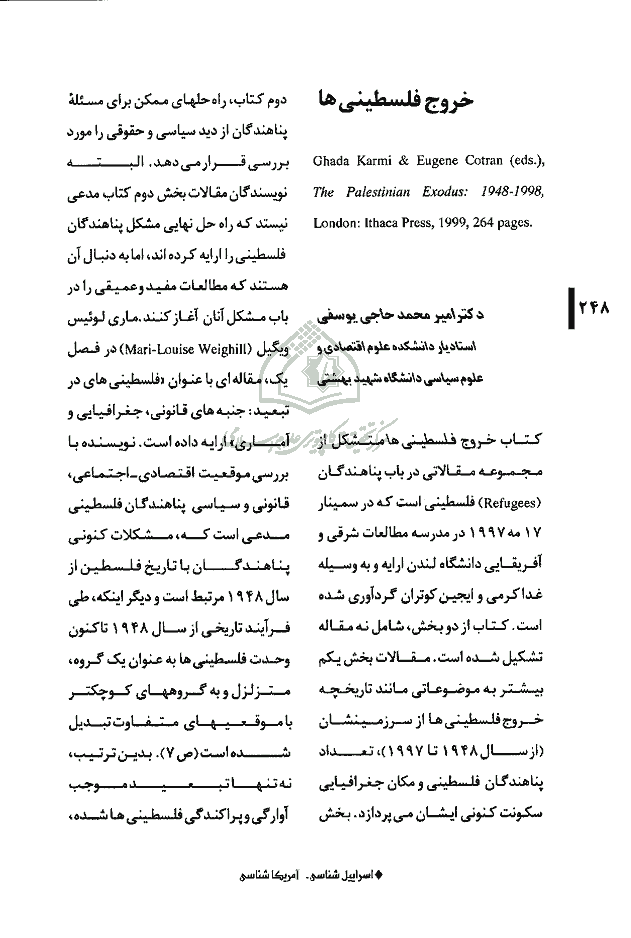 خروج فلسطینی ها
Ghada Karmi & Eugene Cotran (eds.),
The Palestinian Exodus: 1948-1998,
London: Ithaca Press, 1999, 264 pages.
۲۴۸
دکتر امیر محمد حاجی یوسفی
استادیار دانشکده علوم اقتصادی و
علوم سیاسی دانشگاه شهید بهشتی
کتاب خروج فلسطینی ها متشکل از
مجموعه مقالاتی در باب پناهندگان
(Refugees) فلسطینی است که در سمینار
۱۷ مه ۱۹۹۷ در مدرسه مطالعات شرقی و
آفریقایی دانشگاه لندن ارایه و به وسیله
غدا کرمی و ایجین کوتران گردآوری شده
است. کتاب از دو بخش، شامل نه مقاله
تشکیل شده است. مقالات بخش یکم
بیشتر به موضوعاتی مانند تاریخچه
خروج فلسطینی ها از سرزمینشان
(از سال ۱۹۴۸ تا ۱۹۹۷)، تعداد
پناهندگان فلسطینی و مکان جغرافیایی
سکونت کنونی ایشان می پردازد. بخش
دوم کتاب، راه حلهای ممکن برای مسئلۀ
پناهندگان از دید سیاسی و حقوقی را مورد
بررسی قرار می دهد. البته
نویسندگان مقالات بخش دوم کتاب مدعی
نیستد که راه حل نهایی مشکل پناهندگان
فلسطینی را ارایه کرده اند، اما به دنبال آن
هستند که مطالعات مفید و عمیقی را در
باب مشکل آنان آغاز کنند. ماری لوئیس
ویگیل (Mari-Louise Weighill) در فصل
یک، مقاله ای با عنوان «فلسطینی های در
تبعید: جنبه های قانونی، جغرافیایی و
آماری» ارایه داده است. نویسنده با
بررسی موقعیت اقتصادی-اجتماعی،
قانونی و سیاسی پناهندگان فلسطینی
مدعی است که، مشکلات کنونی
پناهندگان با تاریخ فلسطین از
سال ۱۹۴۸ مرتبط است و دیگر اینکه، طی
فرآیند تاریخی از سال ۱۹۴۸ تاکنون
وحدت فلسطینی ها به عنوان یک گروه،
متزلزل و به گروههای کوچکتر
با موقعیهای متفاوت تبدیل
شده است (ص ۷). بدین ترتیب،
نه تنها تبعید موجب
آوارگی و پراکندگی فلسطینی ها شده،
♦ اسراییل شناسی - آمریکا شناسی